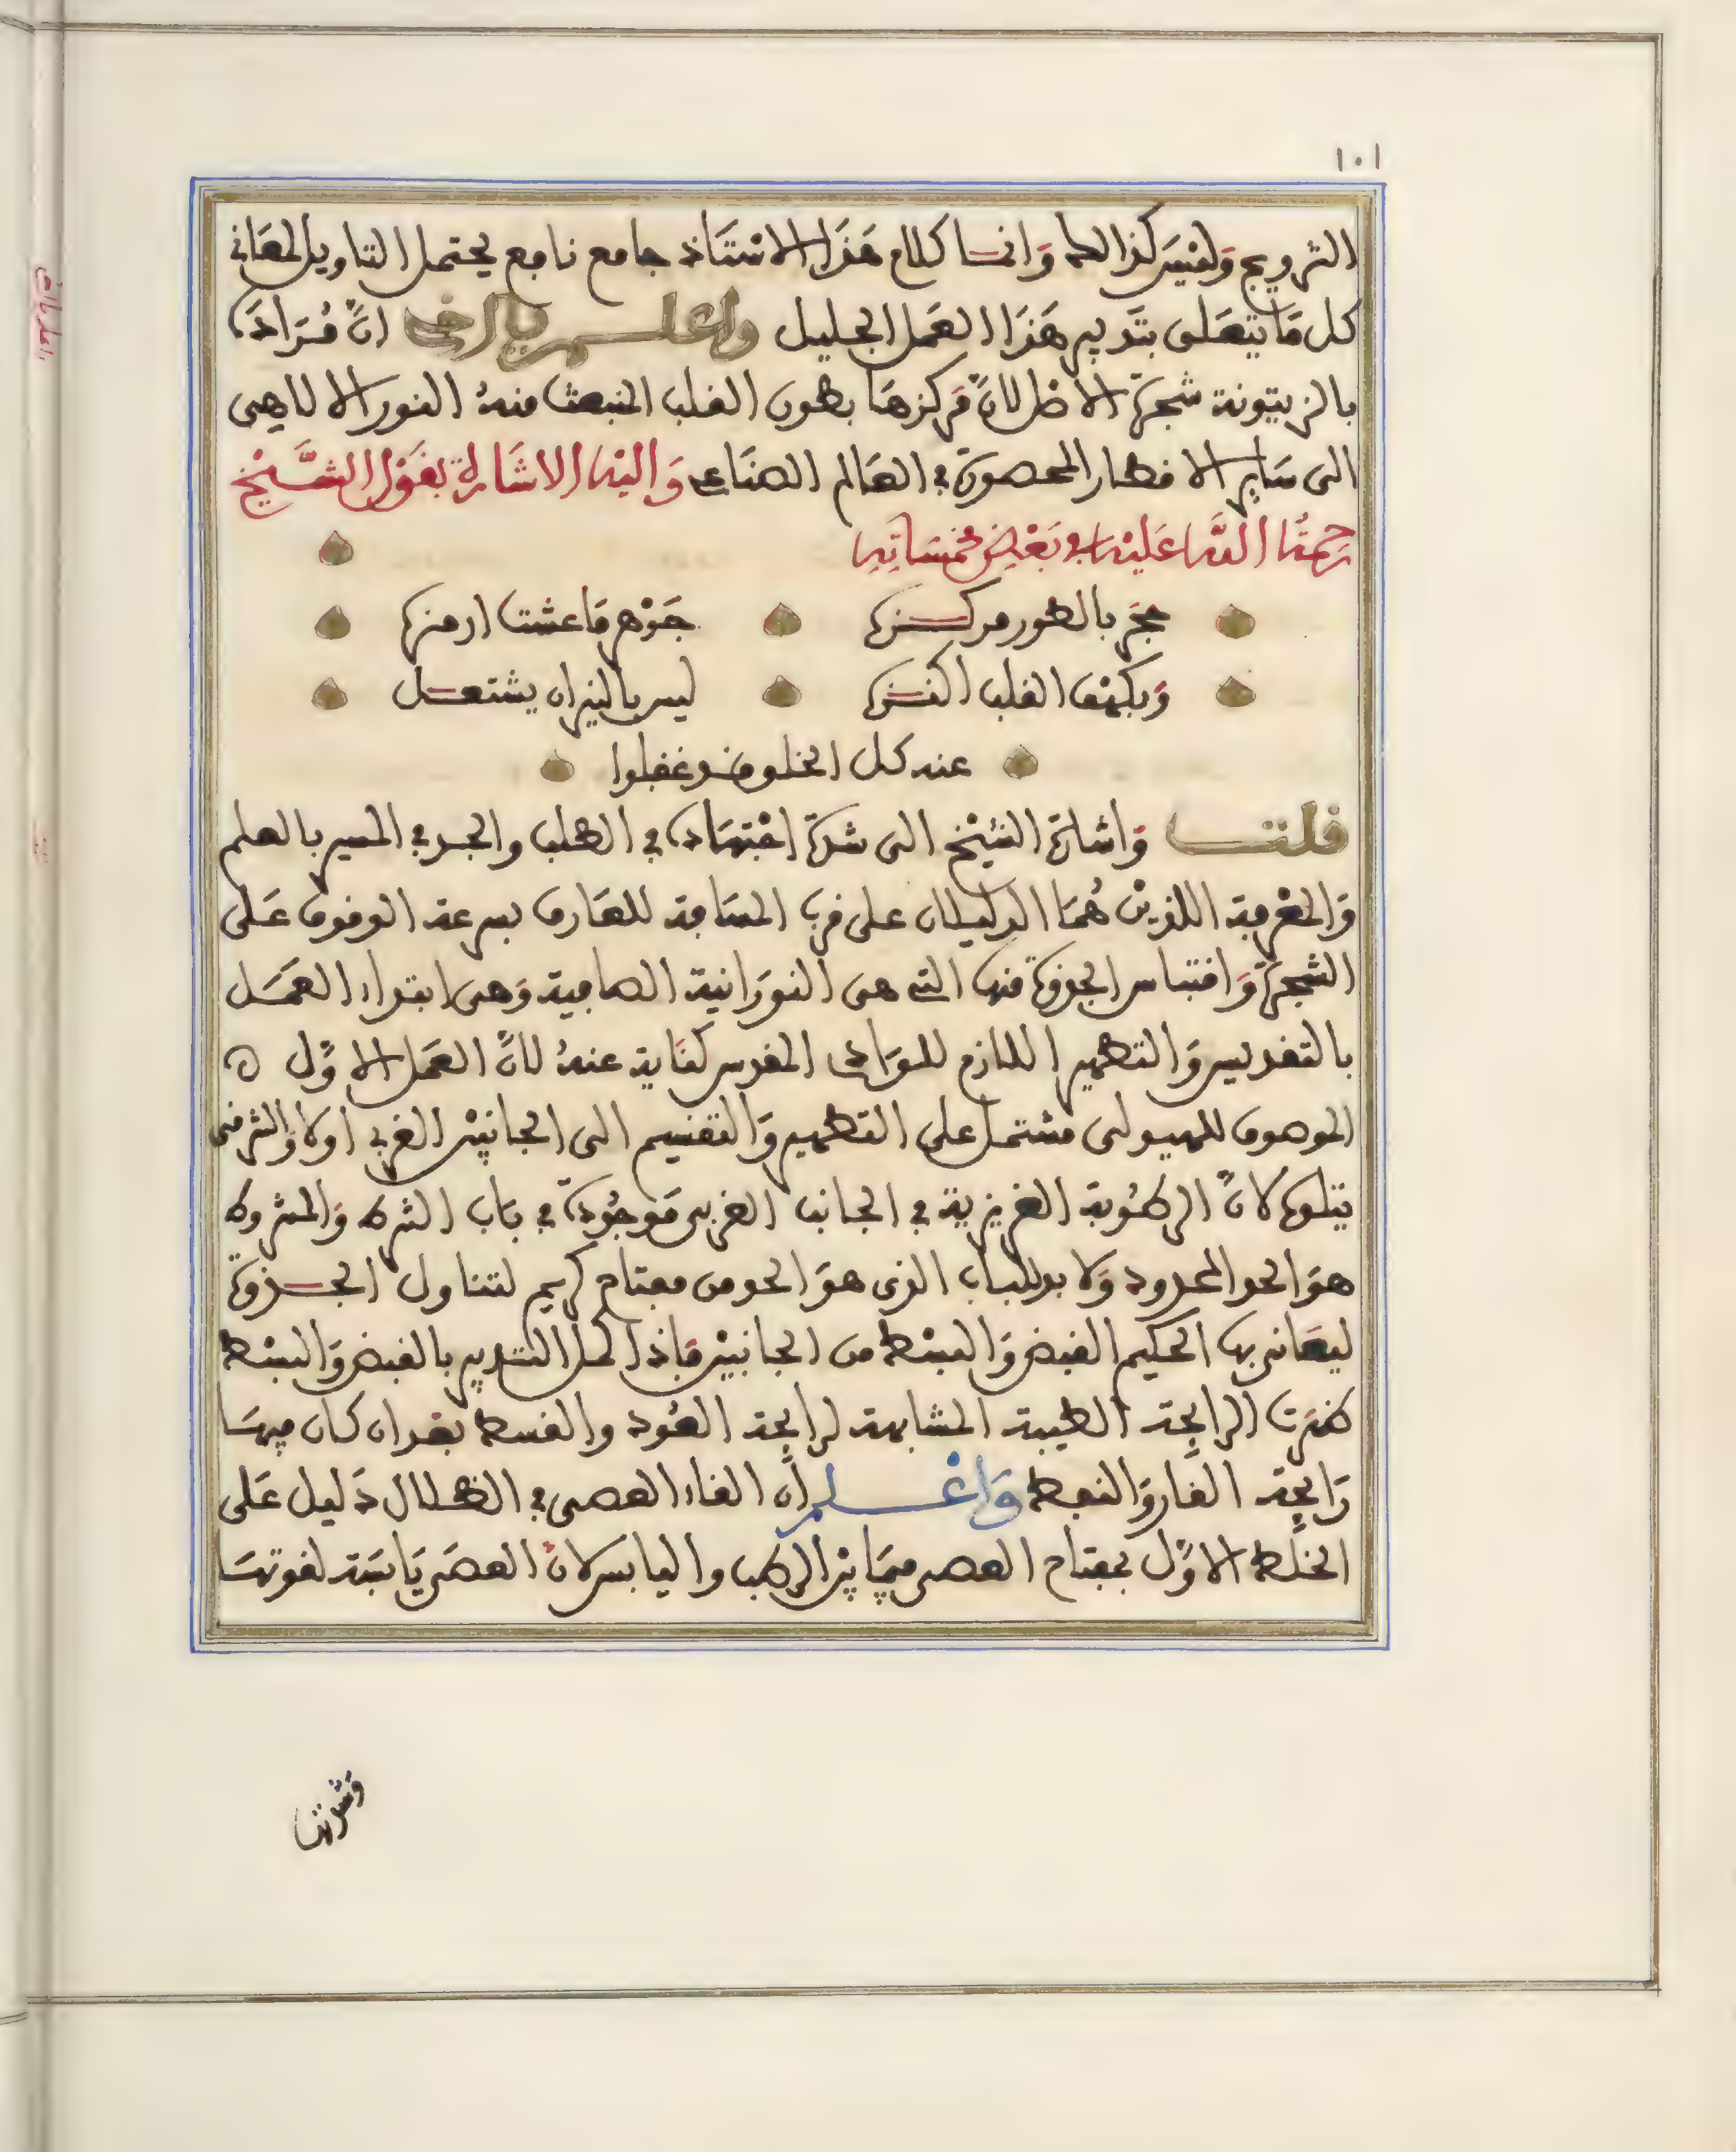 ١٠١
التزويج وليس كذالك وانما كلام هذا الاستاذ جامع نافع يحتمل التاويل لمعاني
كل ما يتعلق بتدبير هذا العمل الجليل واعلم يا اخي ان مراده
بالزيتونة شجرة الاظل لان مركزها بطون القلب المنبعث منه النور الالاهي
الى ساير الاقطار المحصورة في العالم الصناعي واليه الاشارة بقول الشيخ
رحمة الله عليه في بعض مخمساته
حجر بالطور مركزه جوهر ما عشت ارمزه
وبكهف القلب اكنزه ليس بالنيران يشتعل
عند كل الخلق مذ غفلوا
قلت واشارة الشيخ الى شدة اجتهاده في الطلب والجد في المسير بالعلم
والمعرفة اللذين هما الدليلان على قرب المسافة للعارف بسرعة الوقوف على
الشجرة واقتباس الجذوة منها التي هي النورانية الصافية وهي ابتداء العمل
بالتقديس والتطهير اللازم للوادي المقدس كناية عنه لان العمل الاول ه
الموصوف للهيولى مشتمل على التطهير والتقسيم الى الجانبين الغربي اولا والشرقي
يتلوه لان الرطوبة الغريزية في الجانب الغربي موجودة في باب الشرك والمشروك
هو الحد المحدود ولا بد للباب الذي هو الحد من مفتاح كريم لتناول الجذوة
ليعاني بها الحكيم القبض والبسط من الجانبين فاذا كمل التدبير بالقبض والبسط
ظهرت الرايحة الطيبة المشابهة لرايحة العود والقسط بعد ان كان فيها
رايحة القار والنفط واعلم ان القاء العصى في الظلال دليل على
الخلط الاول بمفتاح العصى فيما بين الرطب واليابس لان العصى يابسة لقوتها